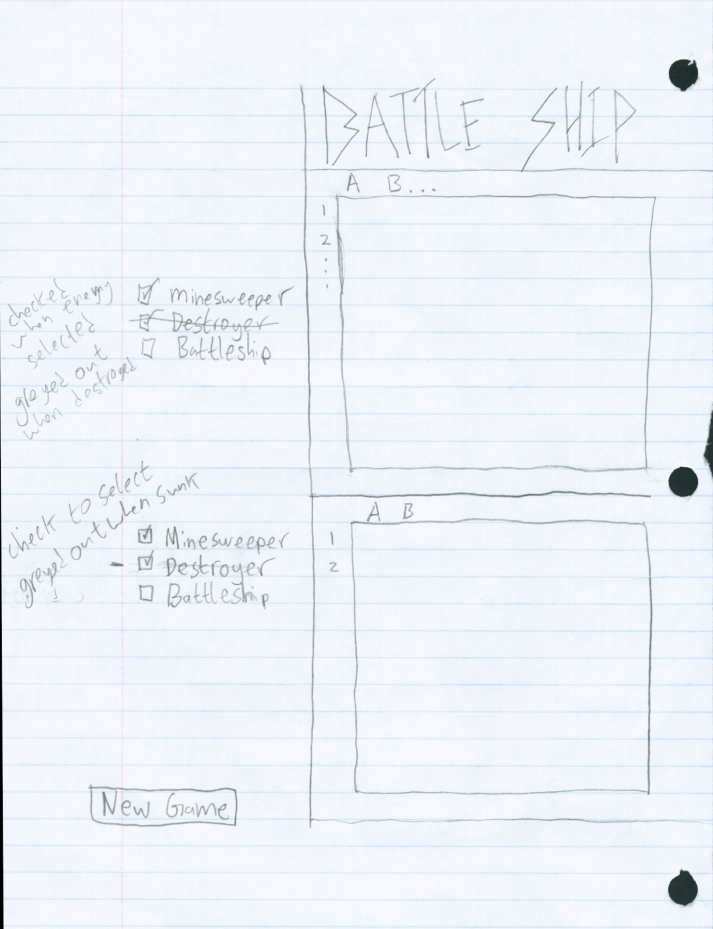 BATTLE SHIP
A B...
1
2
checked
when enemy
selected
greyed out
when destroyed
Minesweeper
Destroyer
Battleship
A B
1
2
check to select
greyed out when sunk
Minesweeper
Destroyer
Battleship
New Game